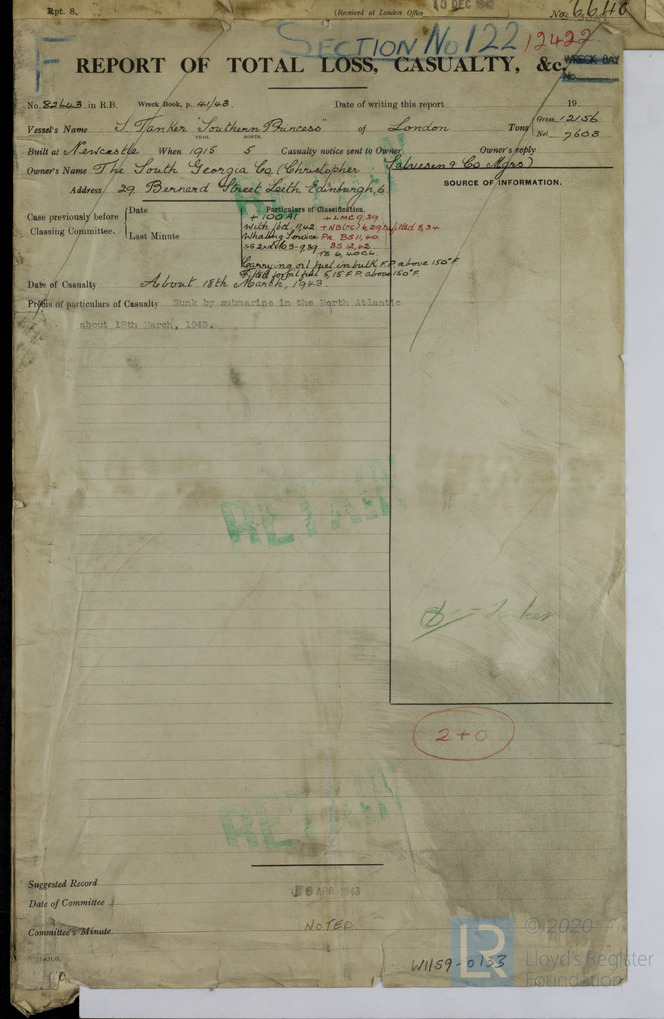 Rpt. 8.
(Received at London Office 10 DEC 1942
No. 6640
F
SECTION No 122
12422
REPORT OF TOTAL LOSS, CASUALTY, &c.
WRECK BAY
No.
No. 82643 in R.B. Wreck Book, p. 41/43 Date of writing this report 19
Vessel's Name S. Tanker "Southern Princess" of London Tons Gross 12156
Net 7603
Built at Newcastle When 1915 5 Casualty notice sent to Owner Owner's reply
YEAR. MONTH.
Owner's Name The South Georgia Co. (Christopher Salvesen & Co. Mgrs)
SOURCE OF INFORMATION.
Address 29 Bernard Street Leith Edinburgh, 6.
Case previously before Classing Committee. Date
Last Minute
Particulars of Classification.
+ 100A1 + LMC 9,39
With fbd, 11,42
Whaling Service
Carrying oil fuel in bulk F.P. above 150°F
Fitted for oil fuel 5,15 F.P. above 150°F.
Date of Casualty About 18th March, 1943.
Precis of particulars of Casualty Sunk by submarine in the North Atlantic
about 18th March, 1943.
RETAIN
RETAIN
2+0
RETAIN
Suggested Record
APR 1943
Date of Committee
Committee's Minute
NOTED
W1159-0133
LR
© 2020
Lloyd's Register
Foundation